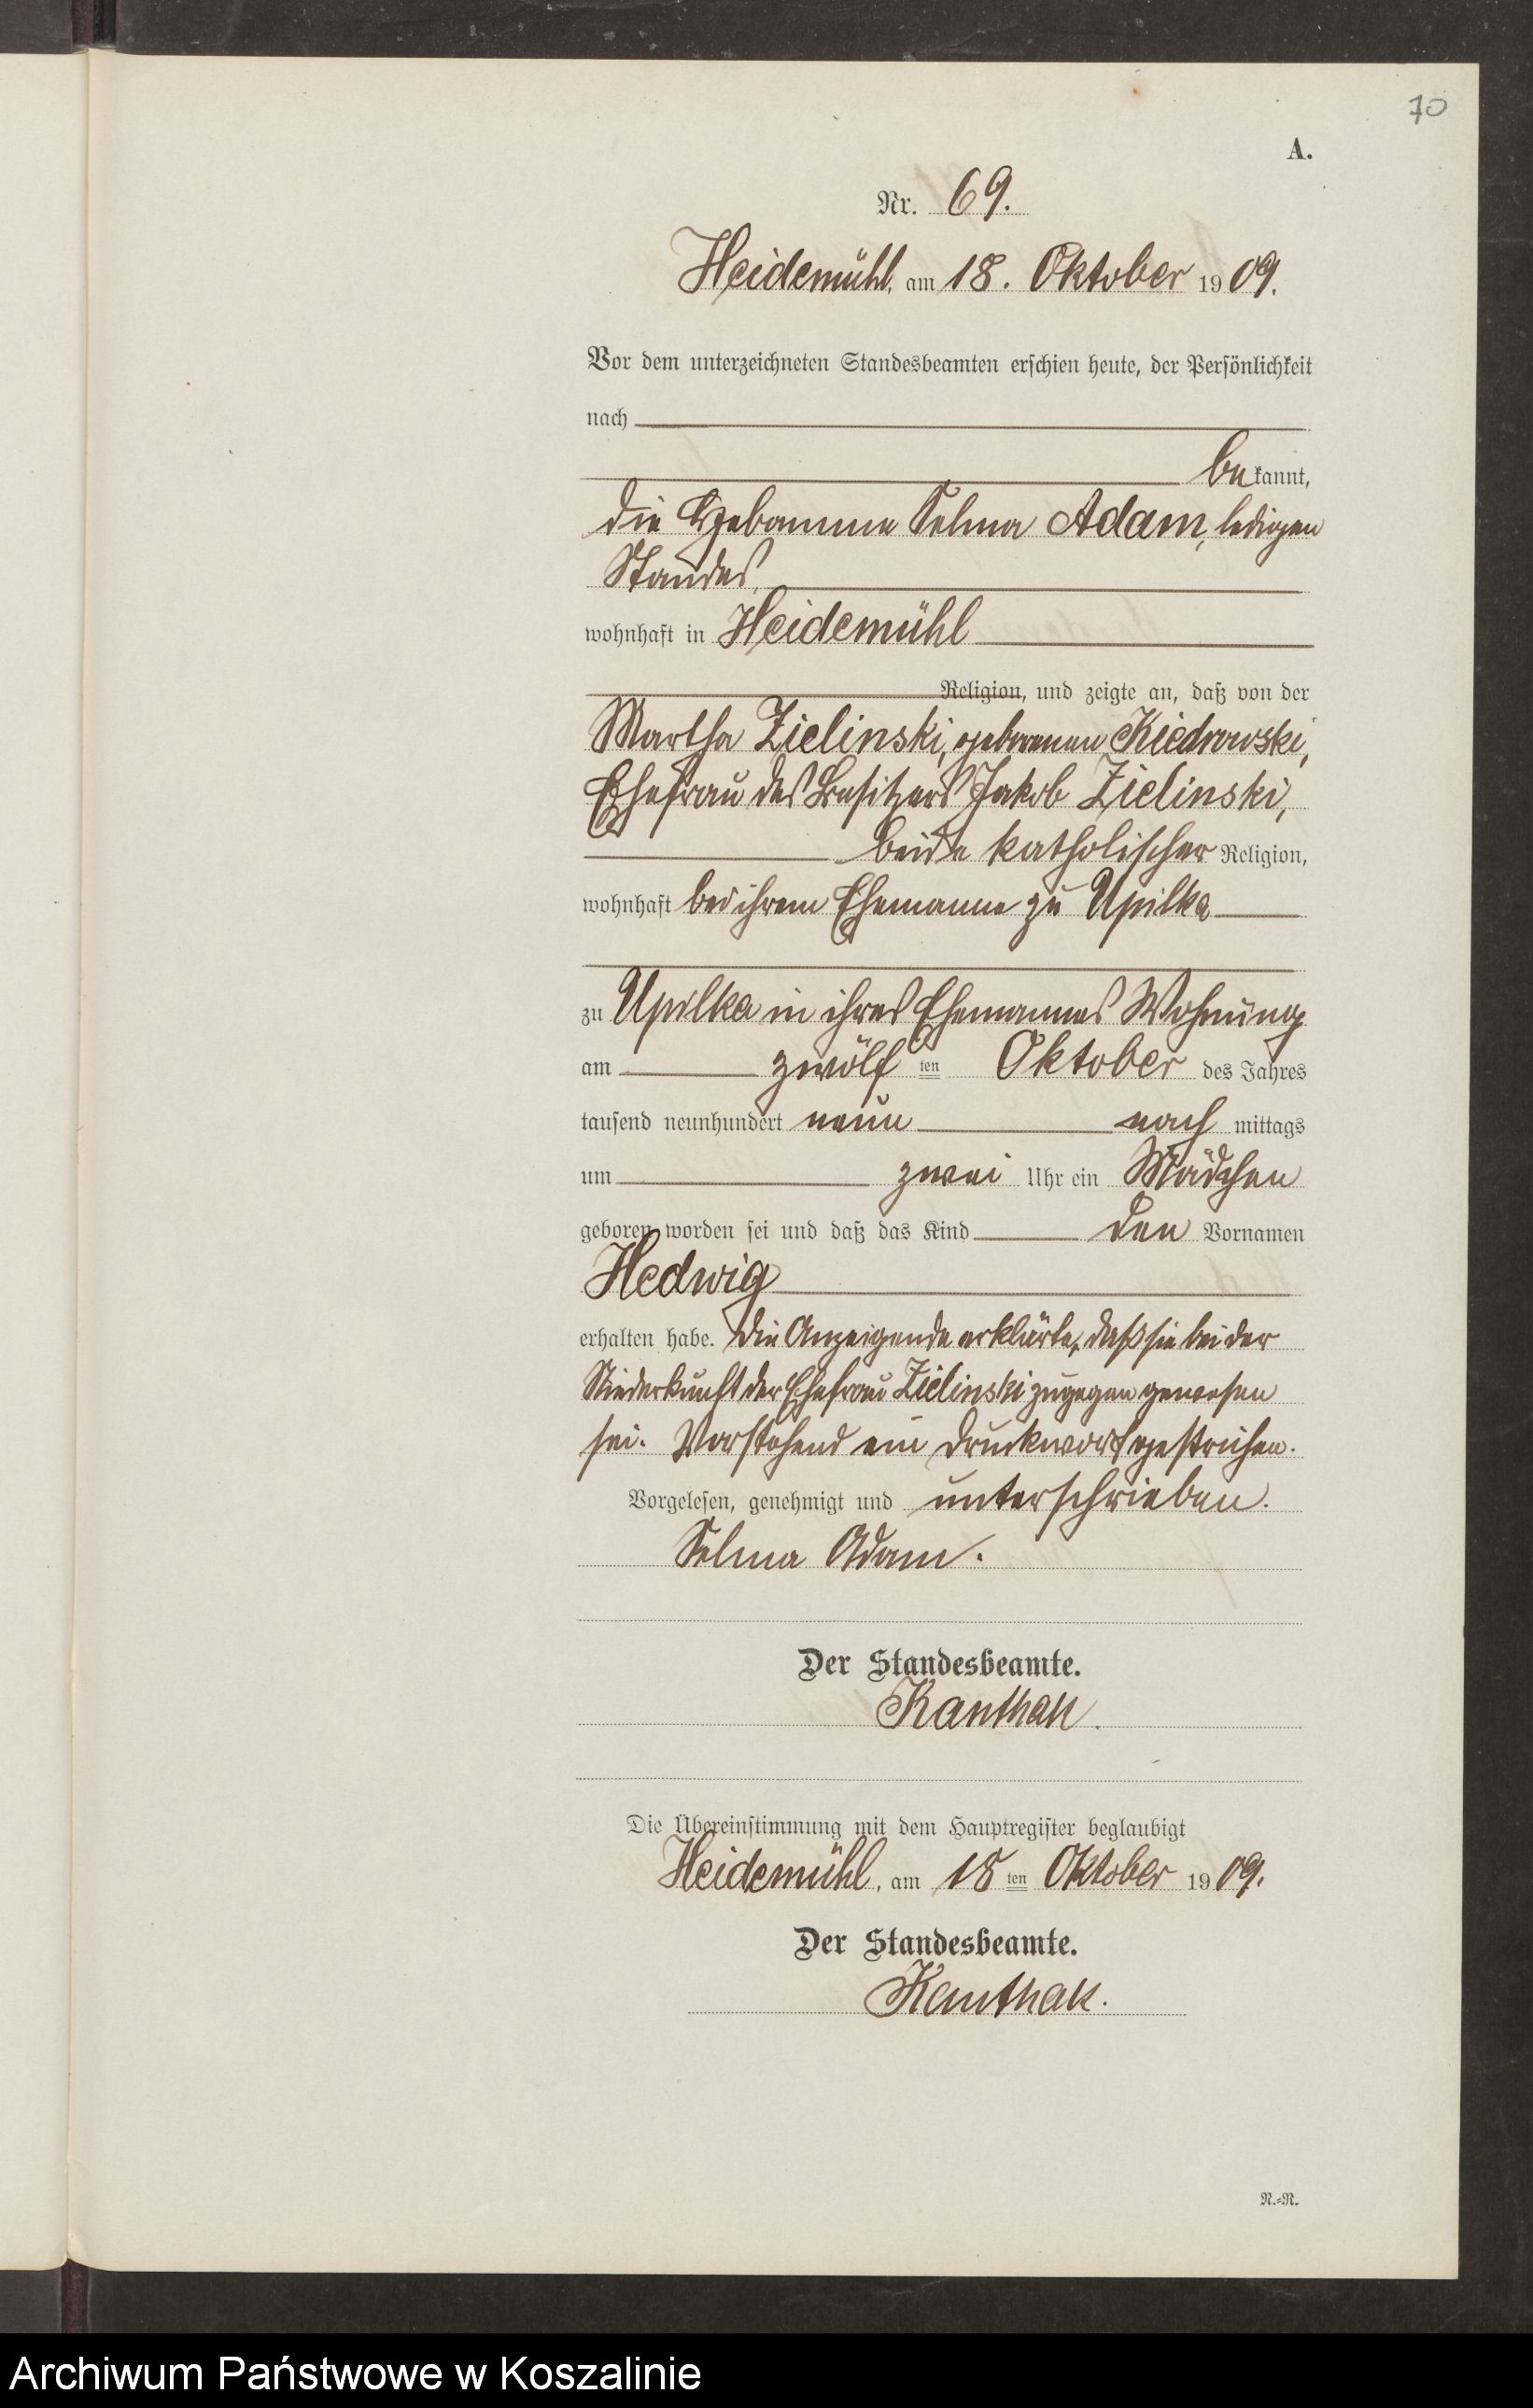 70
A.
Nr. 69.
Heidemühl, am 18. Oktober 1909.
Vor dem unterzeichneten Standesbeamten erschien heute, der Persönlichkeit
nach
bekannt,
die Hebamme Selma Adam, ledigen
Standes,
wohnhaft in Heidemühl
Religion, und zeigte an, daß von der
Martha Zielinski, geborenen Kiedrowski,
Ehefrau des Besitzers Jakob Zielinski,
beide katholischer Religion,
wohnhaft bei ihrem Ehemanne zu Upilka
zu Upilka in ihres Ehemannes Wohnung
am zwölften Oktober des Jahres
tausend neunhundert neun nachmittags
um zwei Uhr ein Mädchen
geboren worden sei und daß das Kind den Vornamen
Hedwig
erhalten habe. Die Anzeigende erklärte, daß sie bei der
Niederkunft der Ehefrau Zielinski zugegen gewesen
sei. Vorstehend ein Druckwort gestrichen.
Vorgelesen, genehmigt und unterschrieben.
Selma Adam.
Der Standesbeamte.
Kanthak.
Die Übereinstimmung mit dem Hauptregister beglaubigt
Heidemühl, am 18ten Oktober 1909.
Der Standesbeamte.
Kanthak.
N.=R.
Archiwum Państwowe w Koszalinie